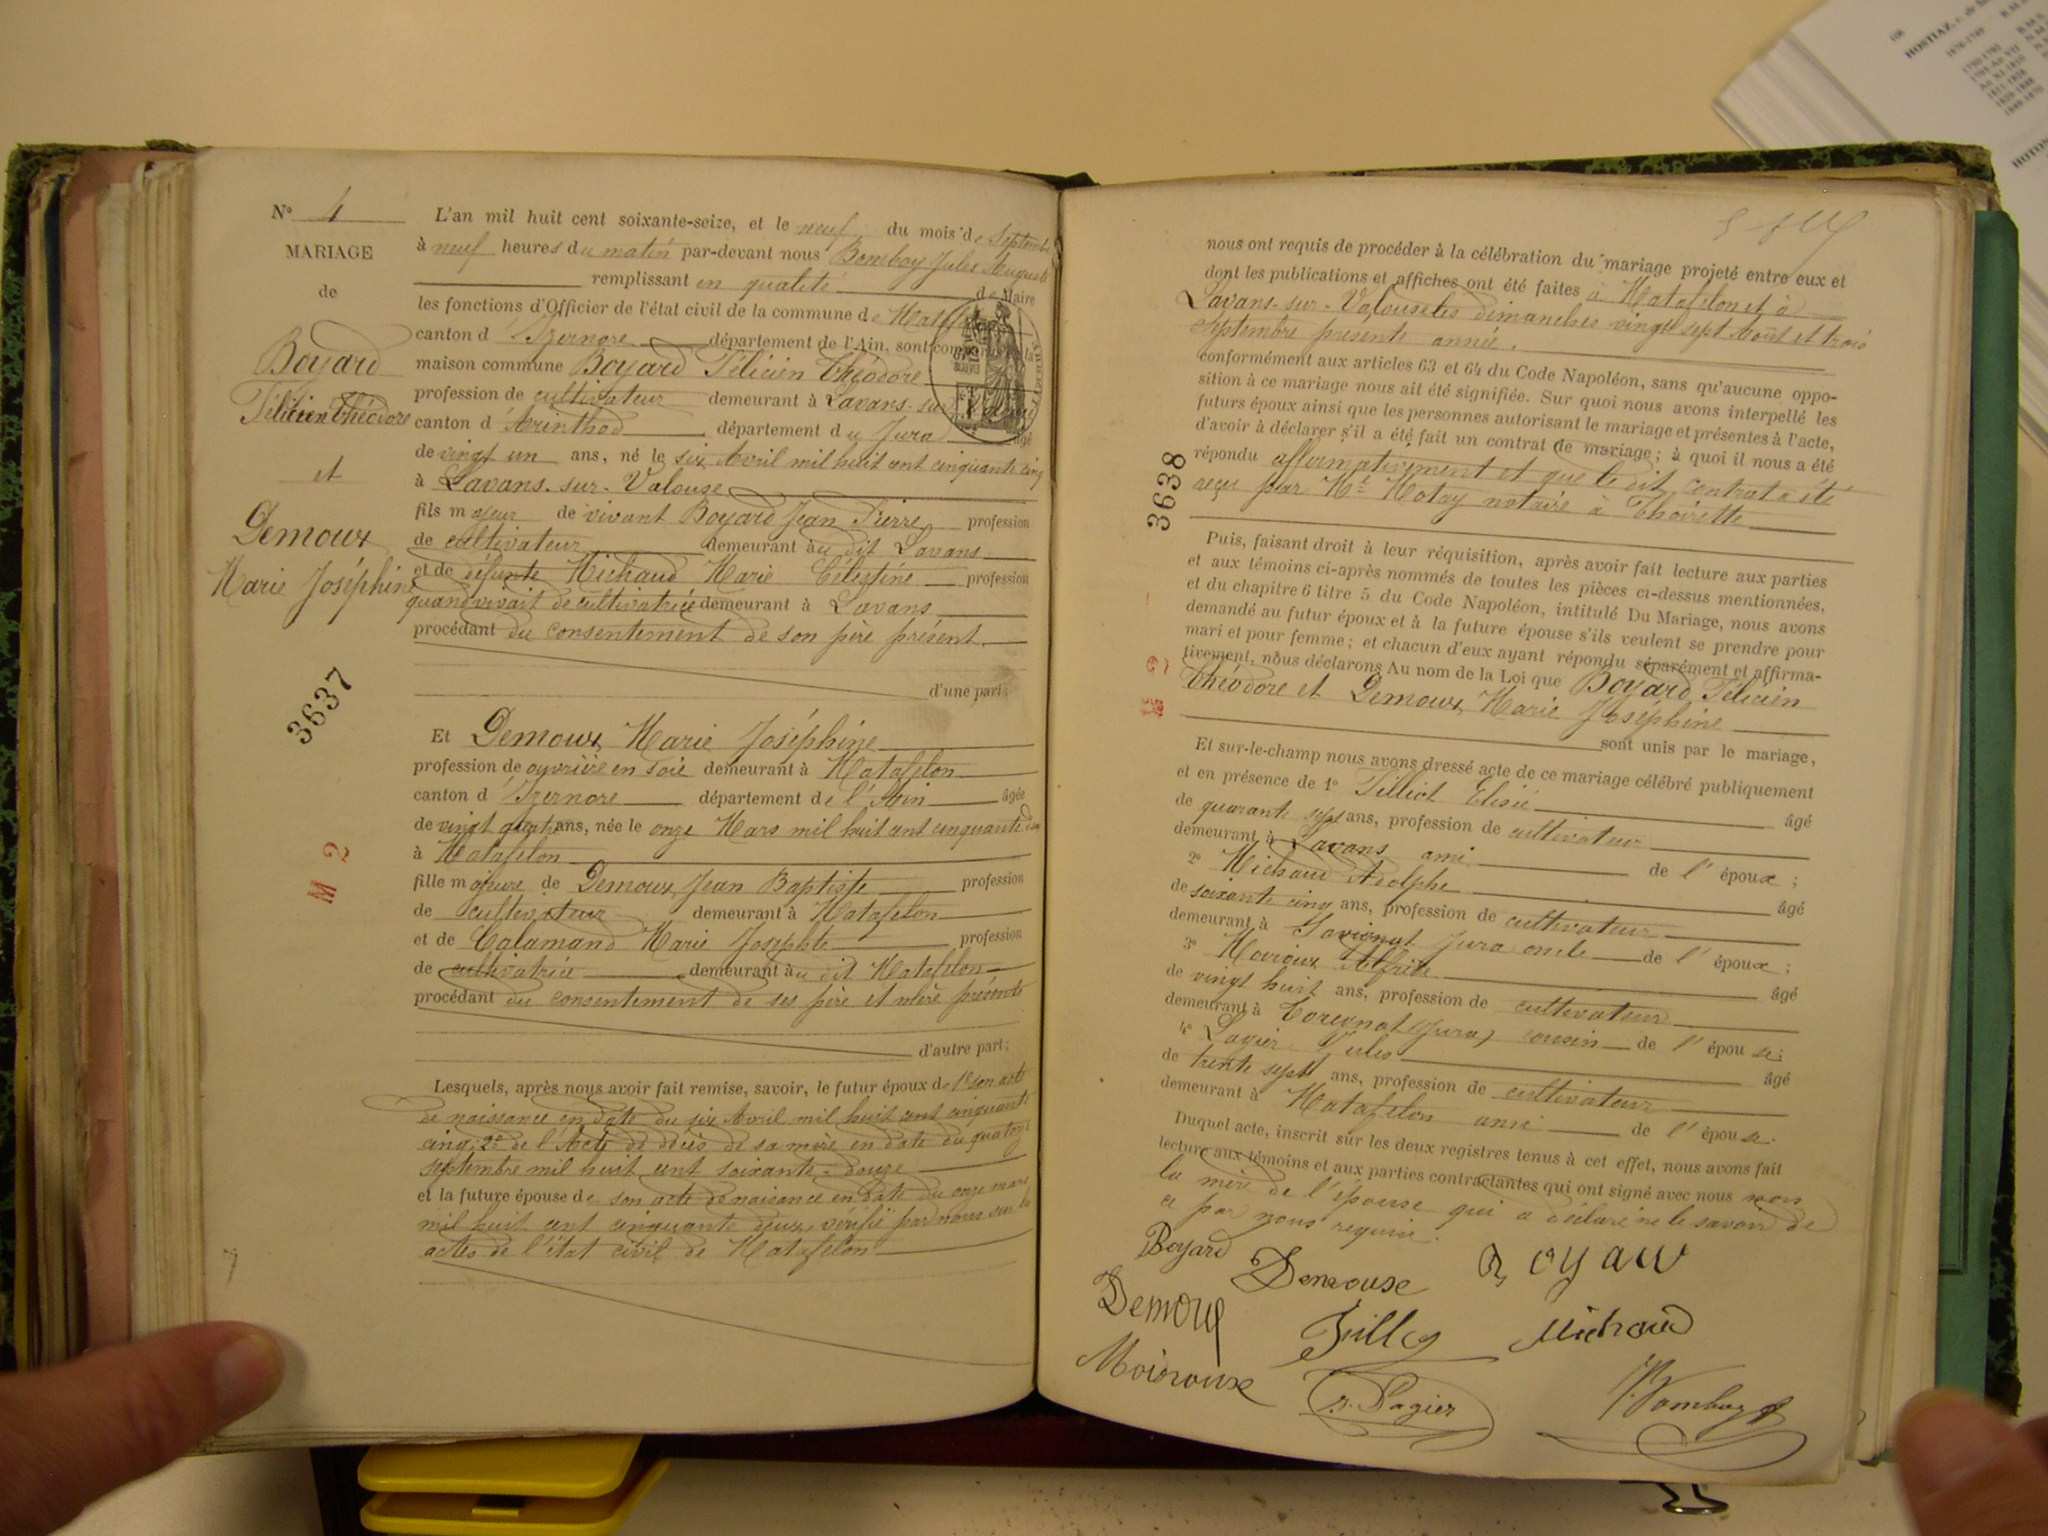 N° 4
MARIAGE
de
Boyard
Félicien Théodore
et
Demoux
Marie Joséphine
3637
M 2
L'an mil huit cent soixante-seize, et le neuf du mois de Septembre
à neuf heures du matin par-devant nous Bombay Jules Auguste
remplissant en qualité de Maire
les fonctions d'Officier de l'état civil de la commune de
canton d'Izernore département de l'Ain, sont comparus
maison commune Boyard Félicien Théodore
profession de cultivateur demeurant à Lavans-sur-
canton d'Arinthod département du Jura âgé
de vingt un ans, né le six Avril mil huit cent cinquante cinq
à Lavans-sur-Valouse
fils majeur de vivant Boyard Jean Pierre profession
de cultivateur demeurant au dit Lavans
et de défunte Michaud Marie Célestine profession
quand vivait de cultivatrice demeurant à Lavans
procédant du consentement de son père présent.
d'une part;
Et Demoux Marie Joséphine
profession de ouvrière en soie demeurant à Matafelon
canton d'Izernore département de l'Ain âgée
de vingt quatre ans, née le onze Mars mil huit cent cinquante deux
à Matafelon
fille majeure de Demoux Jean Baptiste profession
de cultivateur demeurant à Matafelon
et de Calamand Marie Josephte profession
de cultivatrice demeurant au dit Matafelon
procédant du consentement de ses père et mère présents
d'autre part;
Lesquels, après nous avoir fait remise, savoir, le futur époux de 1° son acte
de naissance en date du six Avril mil huit cent cinquante
cinq; 2° de l'Acte de décès de sa mère en date du quatorze
septembre mil huit cent soixante-douze
et la future épouse de son acte de naissance en date du onze mars
mil huit cent cinquante deux, vérifié par nous sur les
actes de l'état civil de Matafelon
nous ont requis de procéder à la célébration du mariage projeté entre eux et
dont les publications et affiches ont été faites à Matafelon et à
Lavans-sur-Valouse les dimanches vingt sept Août et trois
Septembre présente année.
conformément aux articles 63 et 64 du Code Napoléon, sans qu'aucune oppo-
sition à ce mariage nous ait été signifiée. Sur quoi nous avons interpellé les
futurs époux ainsi que les personnes autorisant le mariage et présentes à l'acte,
d'avoir à déclarer s'il a été fait un contrat de mariage; à quoi il nous a été
répondu affirmativement et que le dit contrat a été
reçu par Mt Motay notaire à Thoirette
3638
Puis, faisant droit à leur réquisition, après avoir fait lecture aux parties
et aux témoins ci-après nommés de toutes les pièces ci-dessus mentionnées,
et du chapitre 6 titre 5 du Code Napoléon, intitulé Du Mariage, nous avons
demandé au futur époux et à la future épouse s'ils veulent se prendre pour
mari et pour femme; et chacun d'eux ayant répondu séparément et affirma-
tivement, nous déclarons Au nom de la Loi que Boyard Félicien
Théodore et Demoux Marie Joséphine
sont unis par le mariage,
Et sur-le-champ nous avons dressé acte de ce mariage célébré publiquement
et en présence de 1° Tilliot Elisée âgé
de quarant sept ans, profession de cultivateur
demeurant à Lavans ami de l'époux;
2° Michaud Adolphe âgé
de soixante cinq ans, profession de cultivateur
demeurant à Jura oncle de l'époux;
3° Alfride âgé
de vingt huit ans, profession de cultivateur
demeurant à Coregnat (Jura) cousin de l'épouse;
4° Lagier Jules âgé
de trente sept ans, profession de cultivateur
demeurant à Matafelon ami de l'épouse.
Duquel acte, inscrit sur les deux registres tenus à cet effet, nous avons fait
lecture aux témoins et aux parties contractantes qui ont signé avec nous non
la mère de l'épouse qui a déclaré ne le savoir de
ce par nous requise.
Boyard Demouse Boyard
Demoux Michaud
Moiroux Lagier Bombay
106
HOSTIAZ, c. de